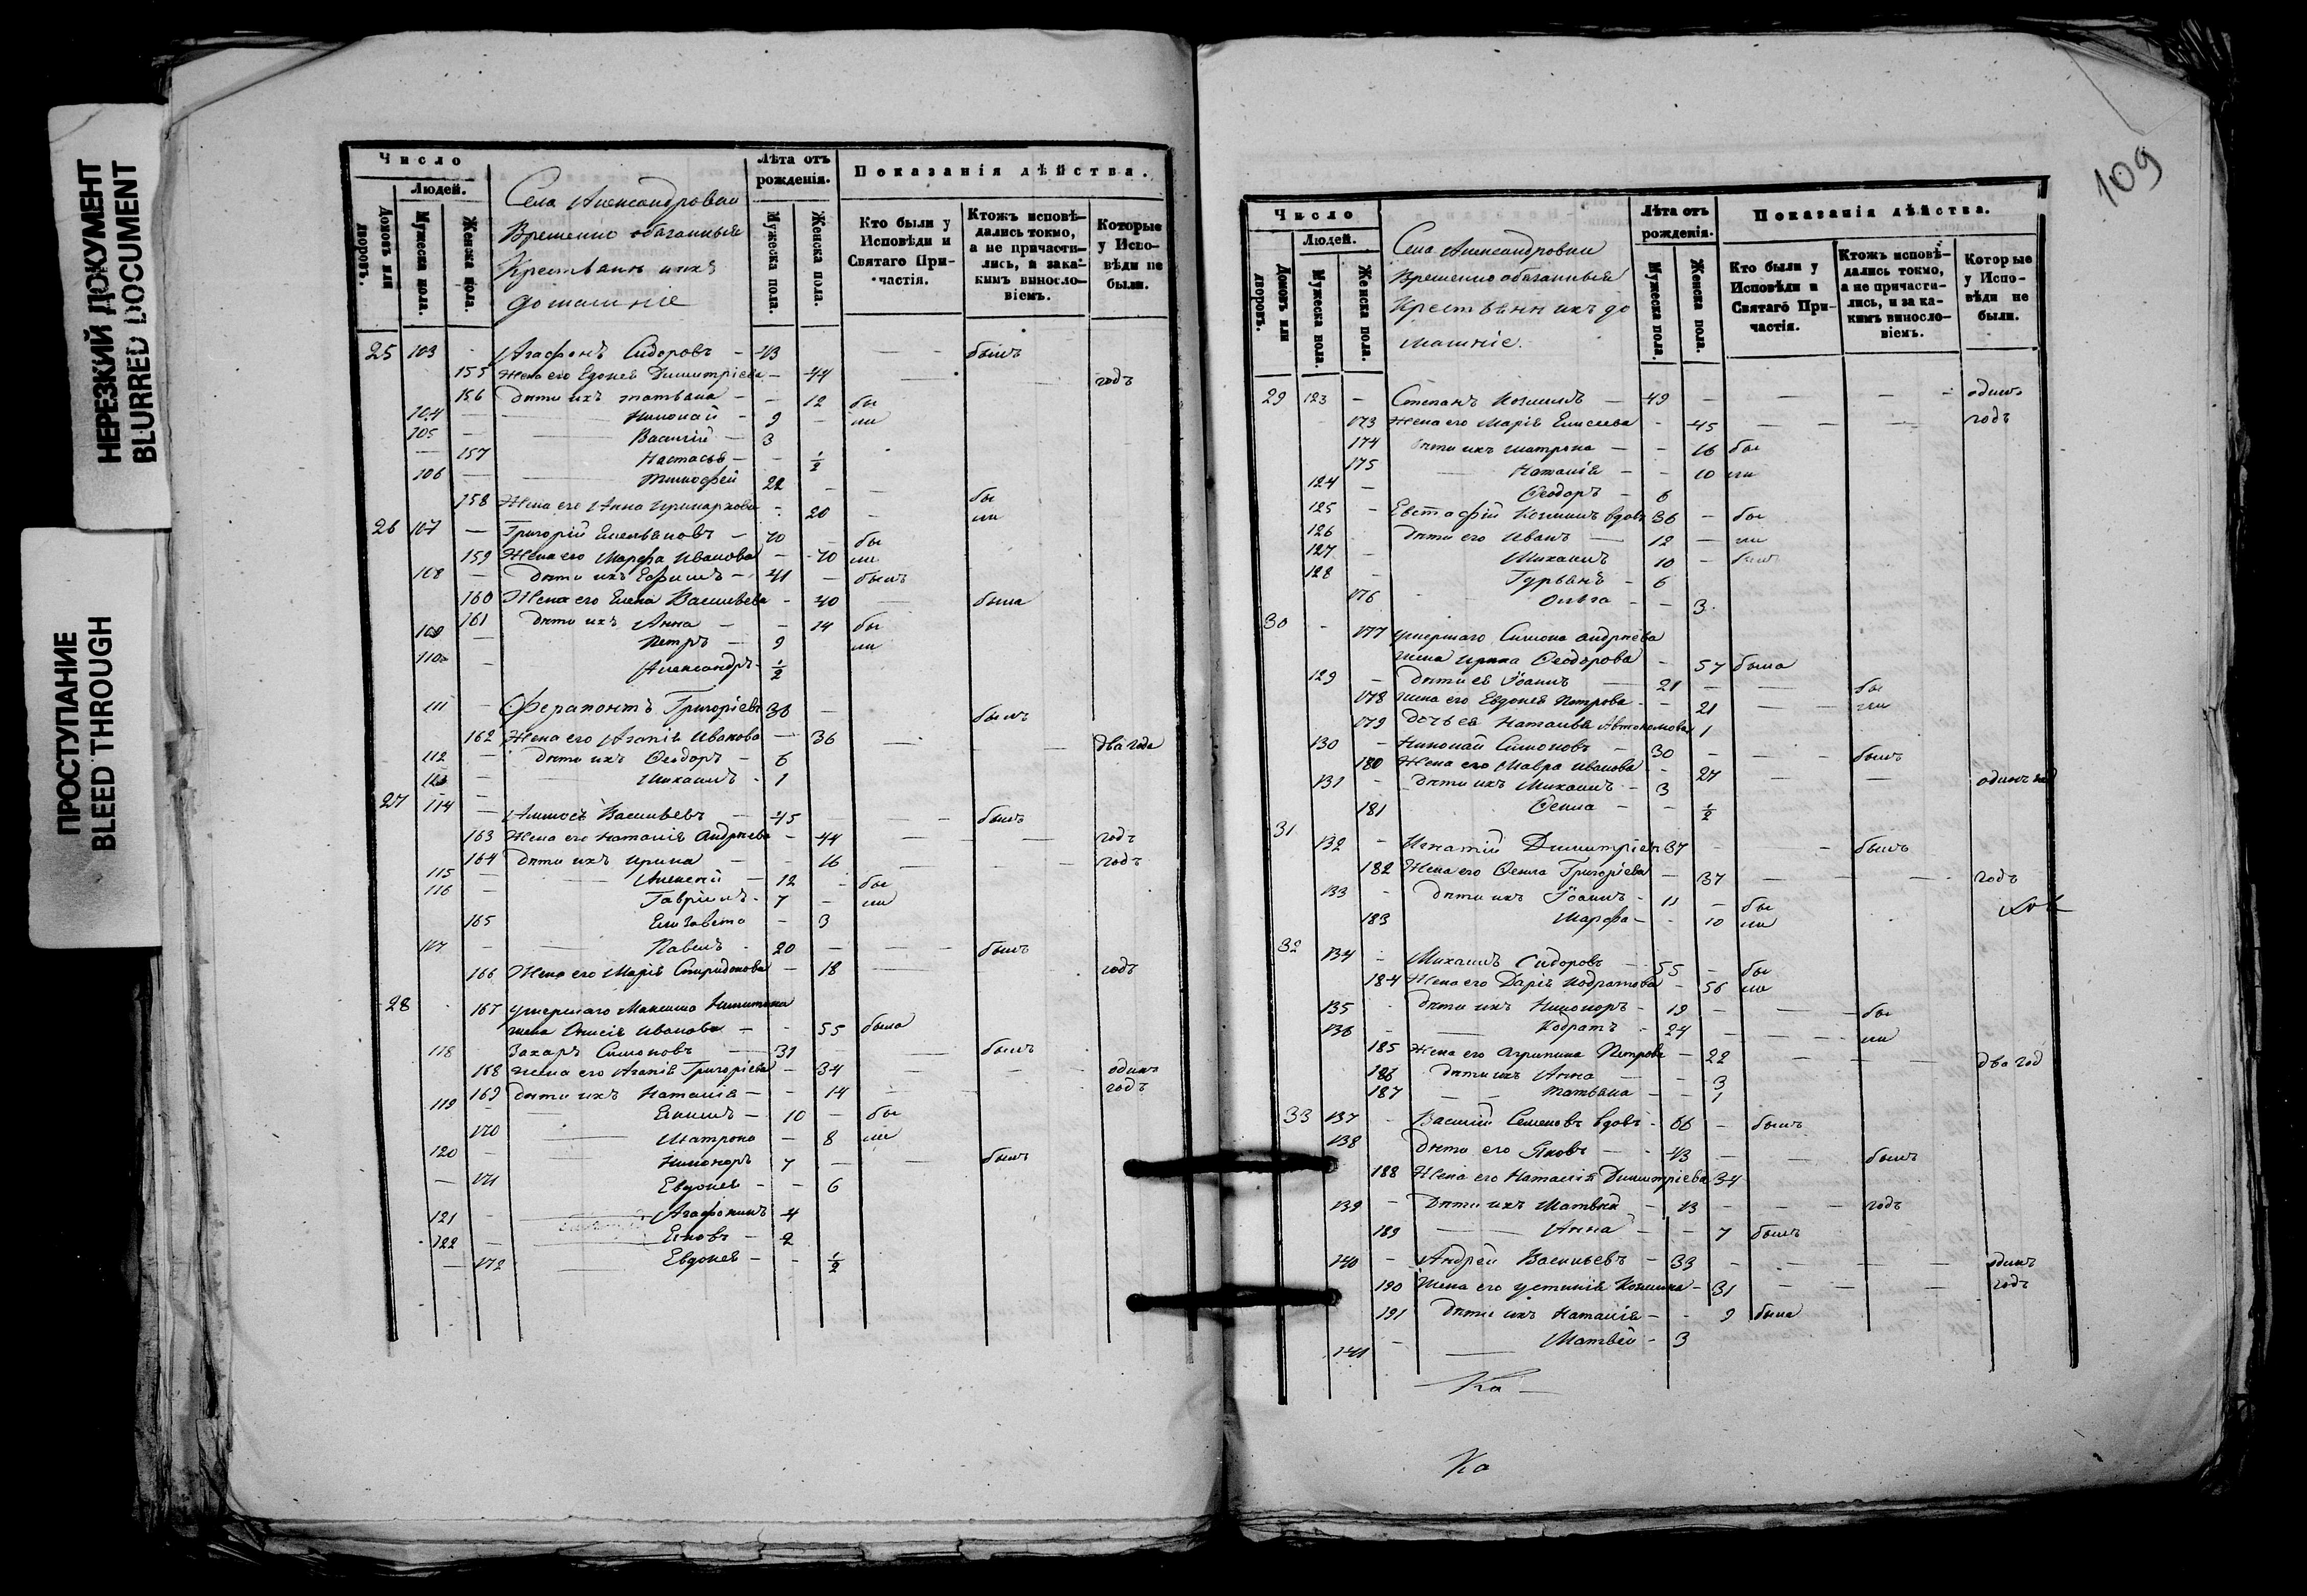 НЕРЕЗКИЙ ДОКУМЕНТ
BLURRED DOCUMENT
ПРОСТУПАНИЕ
BLEED THROUGH
Число
Людей.
Домовъ или дворовъ.
Мужеска пола.
Женска пола.
Села Александровки
Временно обязанные
Крестьяне и ихъ
домашніе
Лѣта отъ рожденія.
Мужеска пола.
Женска пола.
Показанія дѣйства.
Кто были у Исповѣди и Святаго Причастія.
Ктожъ исповѣдались токмо, а не причастились, и за какимъ винословіемъ.
Которые у Исповѣди не были.
25 103 - Агафонъ Сидоровъ - 43 - - былъ
155 Жена его Евдокія Димитріева - 44 - - годъ
156 Дѣти ихъ Татьяна - - 12 бы
104 - Николай - 9 - ли
105 - Василій - 3
157 Настасья - - ½
106 - Тимофей 22 - -
158 Жена его Анна Иринархова - 20 - бы ли
26 107 - Григорій Емельяновъ - 70 - бы
159 Жена его Марфа Иванова - 70 ли
108 - Дѣти ихъ Ефимъ - 41 - былъ
160 Жена его Елена Васильева - 40 - была
161 Дѣти ихъ Анна - - 14 бы
109 - Петръ - 9 ли
110 - Александръ - ½
111 - Ферапонтъ Григорьевъ 38 - былъ
162 Жена его Агапія Иванова - 36 - - два года
112 - Дѣти ихъ Ѳеодоръ - 6
113 - Михаилъ - 1
27 114 - Амносъ Васильевъ - 45 - - былъ
163 Жена его Наталія Андреева - 44 - - годъ
164 Дѣти ихъ Ирина - - 16 - - годъ
115 - Алексей - 12 - бы
116 - Гавріилъ - 7 - ли
165 Елизавета - 3
117 - Павелъ - 20 - - былъ
166 Жена его Марія Спиридонова - 18 - годъ
28 - 167 Умершаго Максима Никитина
жена Анисія Иванова - - 55 была
118 Захаръ Симоновъ - 31 - - былъ
168 Жена его Агапія Григорьева - 34 - - одинъ
169 Дѣти ихъ Наталія - - 14 - годъ
119 - Екимъ - 10 - бы
170 Матрона - 8 ли
120 - Никоноръ 7 - - былъ
171 Евдокія - - 6
121 - Агафонникъ 4
122 - Яковъ - 2
172 Евдокія - - ½
109
Число
Людей.
Домовъ или дворовъ.
Мужеска пола.
Женска пола.
Села Александровки
Временно обязанные
Крестьяне и ихъ до
машніе.
Лѣта отъ рожденія.
Мужеска пола.
Женска пола.
Показанія дѣйства.
Кто были у Исповѣди и Святаго Причастія.
Ктожъ исповѣдались токмо, а не причастились, и за какимъ винословіемъ.
Которые у Исповѣди не были.
29 123 - Степанъ Козминъ - 49 - - - одинъ
173 Жена его Марія Елисеева - 45 - - - годъ
174 Дѣти ихъ Матрона - - 16 бы
175 Наталія - - 10 ли
124 - Ѳеодоръ - 6
125 - Евстафій Козминъ вдовъ 36 - бы
126 Дѣти его Иванъ - 12 - ли
127 - Михаилъ 10 - былъ
128 - Гурьянъ - 6
176 - Ольга - - 3
30 - 177 Умершаго Симона Андреева
жена Ирина Ѳеодорова - 57 была
129 - Дѣти ея Іоаннъ - 21 - - бы
178 Жена его Евдокія Петрова - - 21 - - ли
179 Дочь ея Наталья Автономова 1
130 - Николай Симоновъ - 30 - - былъ
180 Жена его Мавра Иванова - 27 - - одинъ годъ
131 - Дѣти ихъ Михаилъ - 3
181 Ѳекла - - ½
31 132 - Игнатій Димитріевъ 37 - - былъ
182 Жена его Ѳекла Григорьева - 37 - - - годъ
133 - Дѣти ихъ Іоаннъ - 11 - бы
183 Марфа - - 10 ли
32 134 - Михаилъ Сидоровъ - 55 - бы
184 Жена его Дарія Кодратова - 56 ли
135 - Дѣти ихъ Никоноръ - 19 - - бы
136 - Кодратъ - 24 - - ли
185 Жена его Агрипина Петрова - 22 - - - два год
186 Дѣти ихъ Анна - - 3
187 - Татьяна - - 1
33 137 - Василій Семеновъ вдовъ - 66 - былъ
138 Дѣти его Яковъ - - 43 - - былъ
188 Жена его Наталія Димитріева 34
139 - Дѣти ихъ Матвѣй - 13 - - - годъ
189 - Анна - - 7 былъ
140 - Андрей Васильевъ - 33 - - - - одинъ
190 Жена его Устинія Козмина - 31 - - - годъ
191 Дѣти ихъ Наталія - - 9 была
141 - Матвѣй - 3
- Ка -
Ка